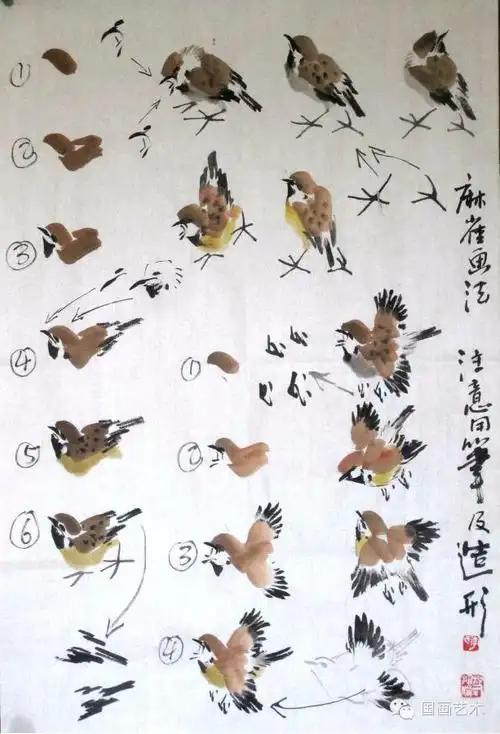 ①
②
③
④
⑤
⑥
①
②
③
④
麻雀画法 注意用筆及造形
国画艺术